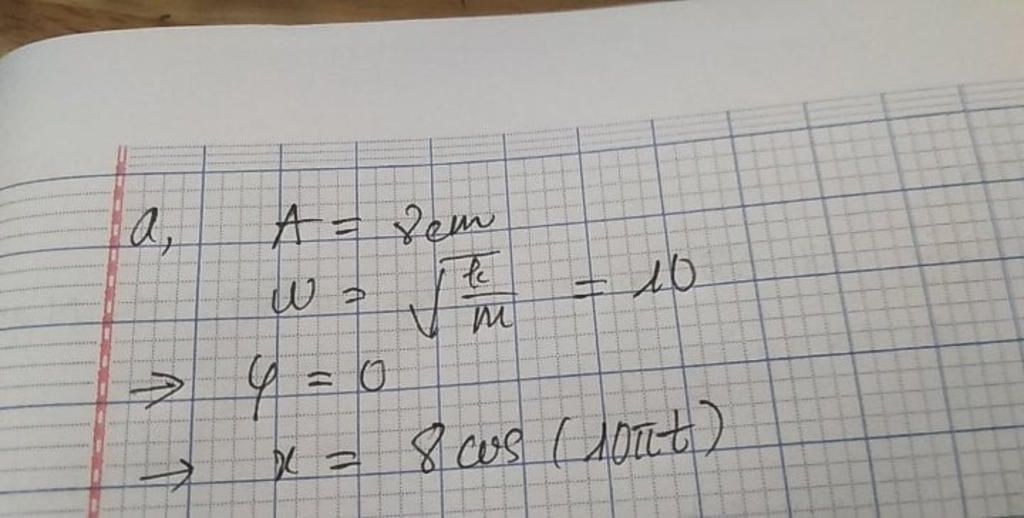 a, A = 8cm
ω = √(k/m) = 10
→ φ = 0
→ x = 8 cos (10πt)